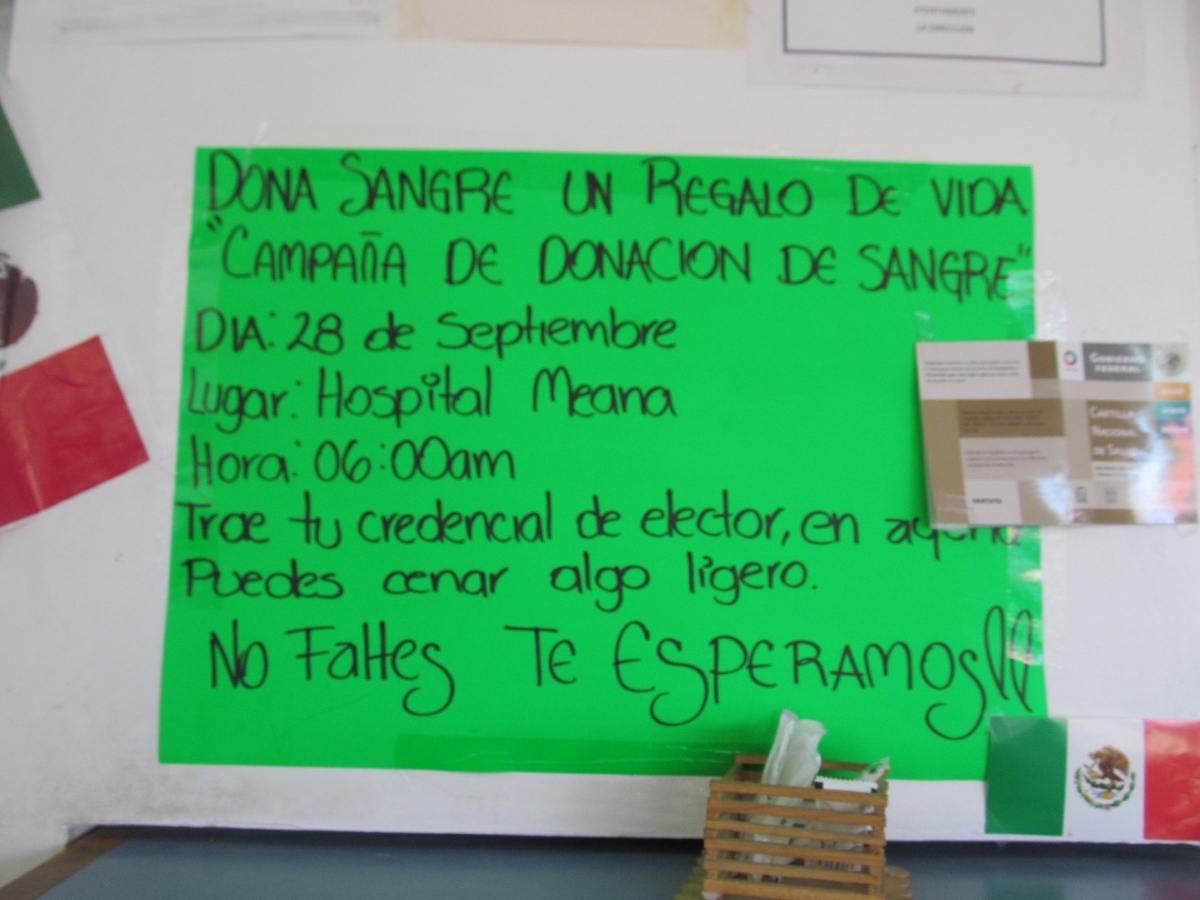 LA DIRECCIÓN
DONA SANGRE UN REGALO DE VIDA
"CAMPAÑA DE DONACION DE SANGRE"
DIA: 28 de Septiembre
Lugar: Hospital Meana
Hora: 06:00am
Trae tu credencial de elector, en
Puedes cenar algo ligero.
No Faltes TE ESPERAMOS!!
GOBIERNO
FEDERAL
CARTILLA
NACIONAL
DE SALUD
GRATUITA